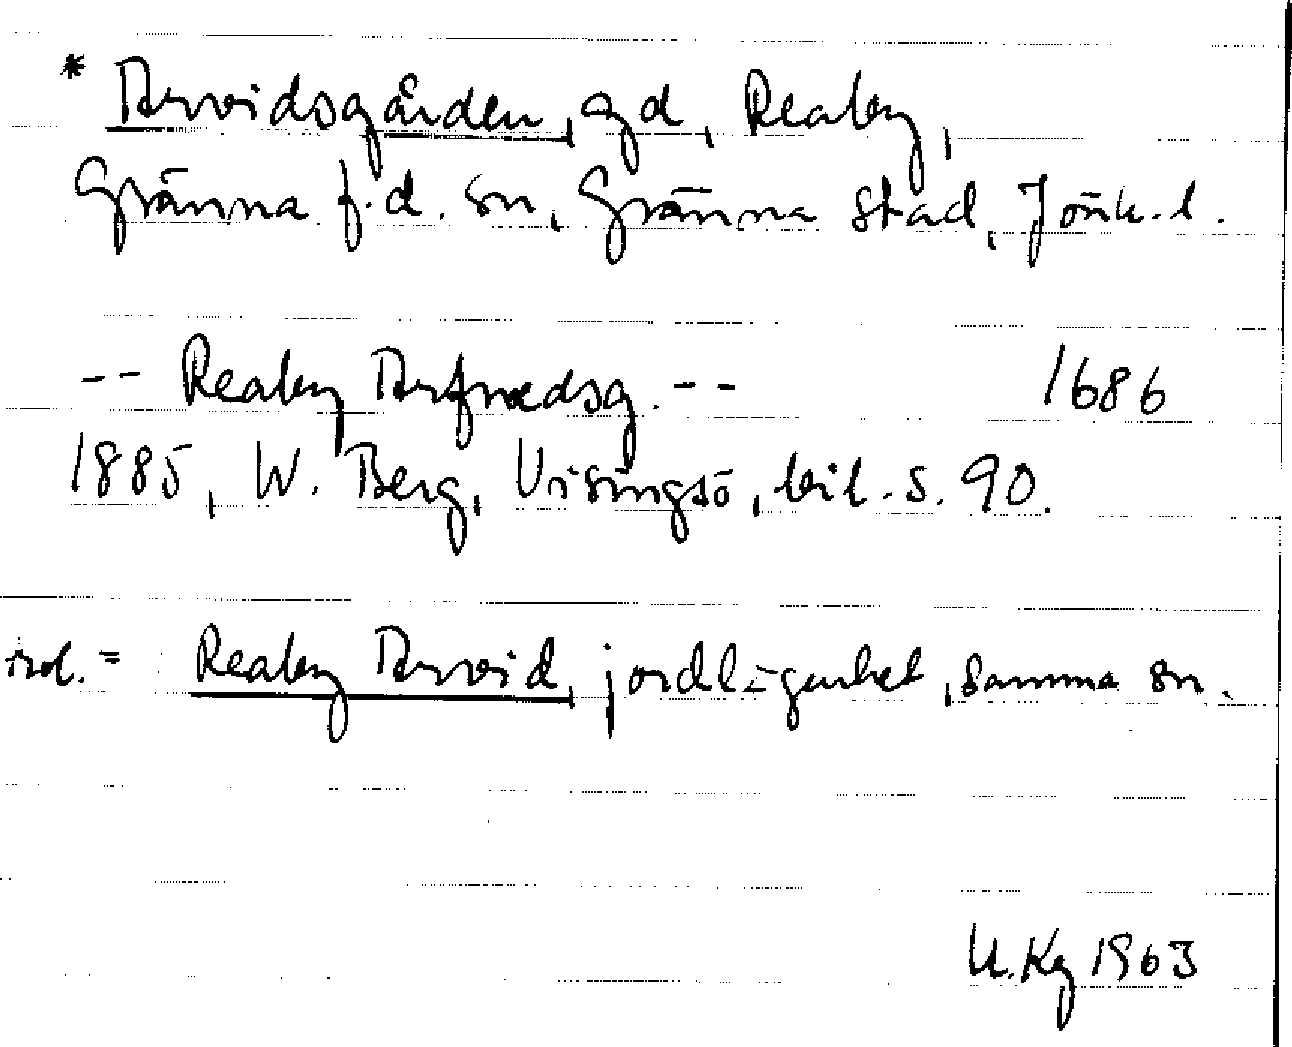 * Arvidsgården, gd, Reaby,
Gränna f.d. sn, Gränna stad, Jönk. l.
-- Reaby Arfvedsg. -- 1686
1885, W. Berg, Visingsö, bil. s. 90.
trol. = Reaby Arvid, jordlägenhet, samma sn.
U. Kg 1963